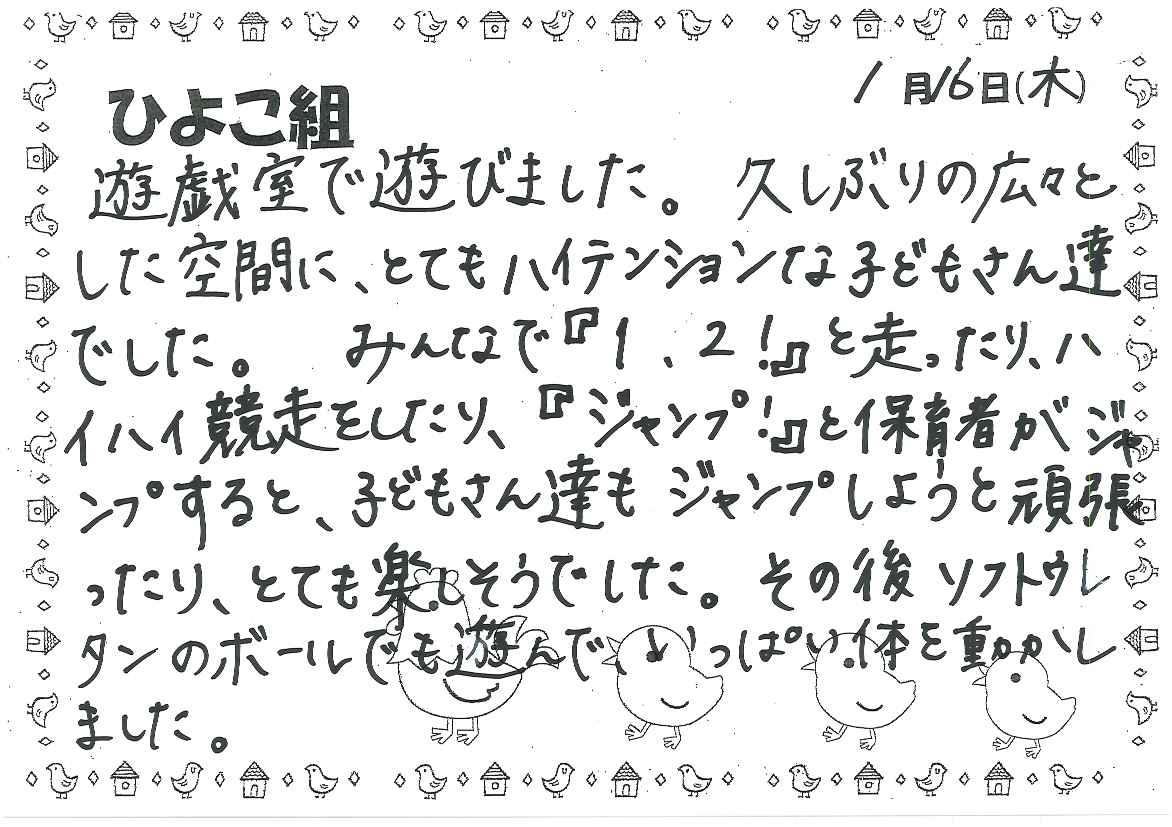 1月16日(木)
ひよこ組
遊戯室で遊びました。 久しぶりの広々と
した空間に、とてもハイテンションな子どもさん達
でした。 みんなで『1、2!』と走ったり、ハ
イハイ競走をしたり、『ジャンプ!』と保育者がジャ
ンプすると、子どもさん達もジャンプしようと頑張
ったり、とても楽しそうでした。 その後ソフトウレ
タンのボールでも遊んで、いっぱい体を動かし
ました。